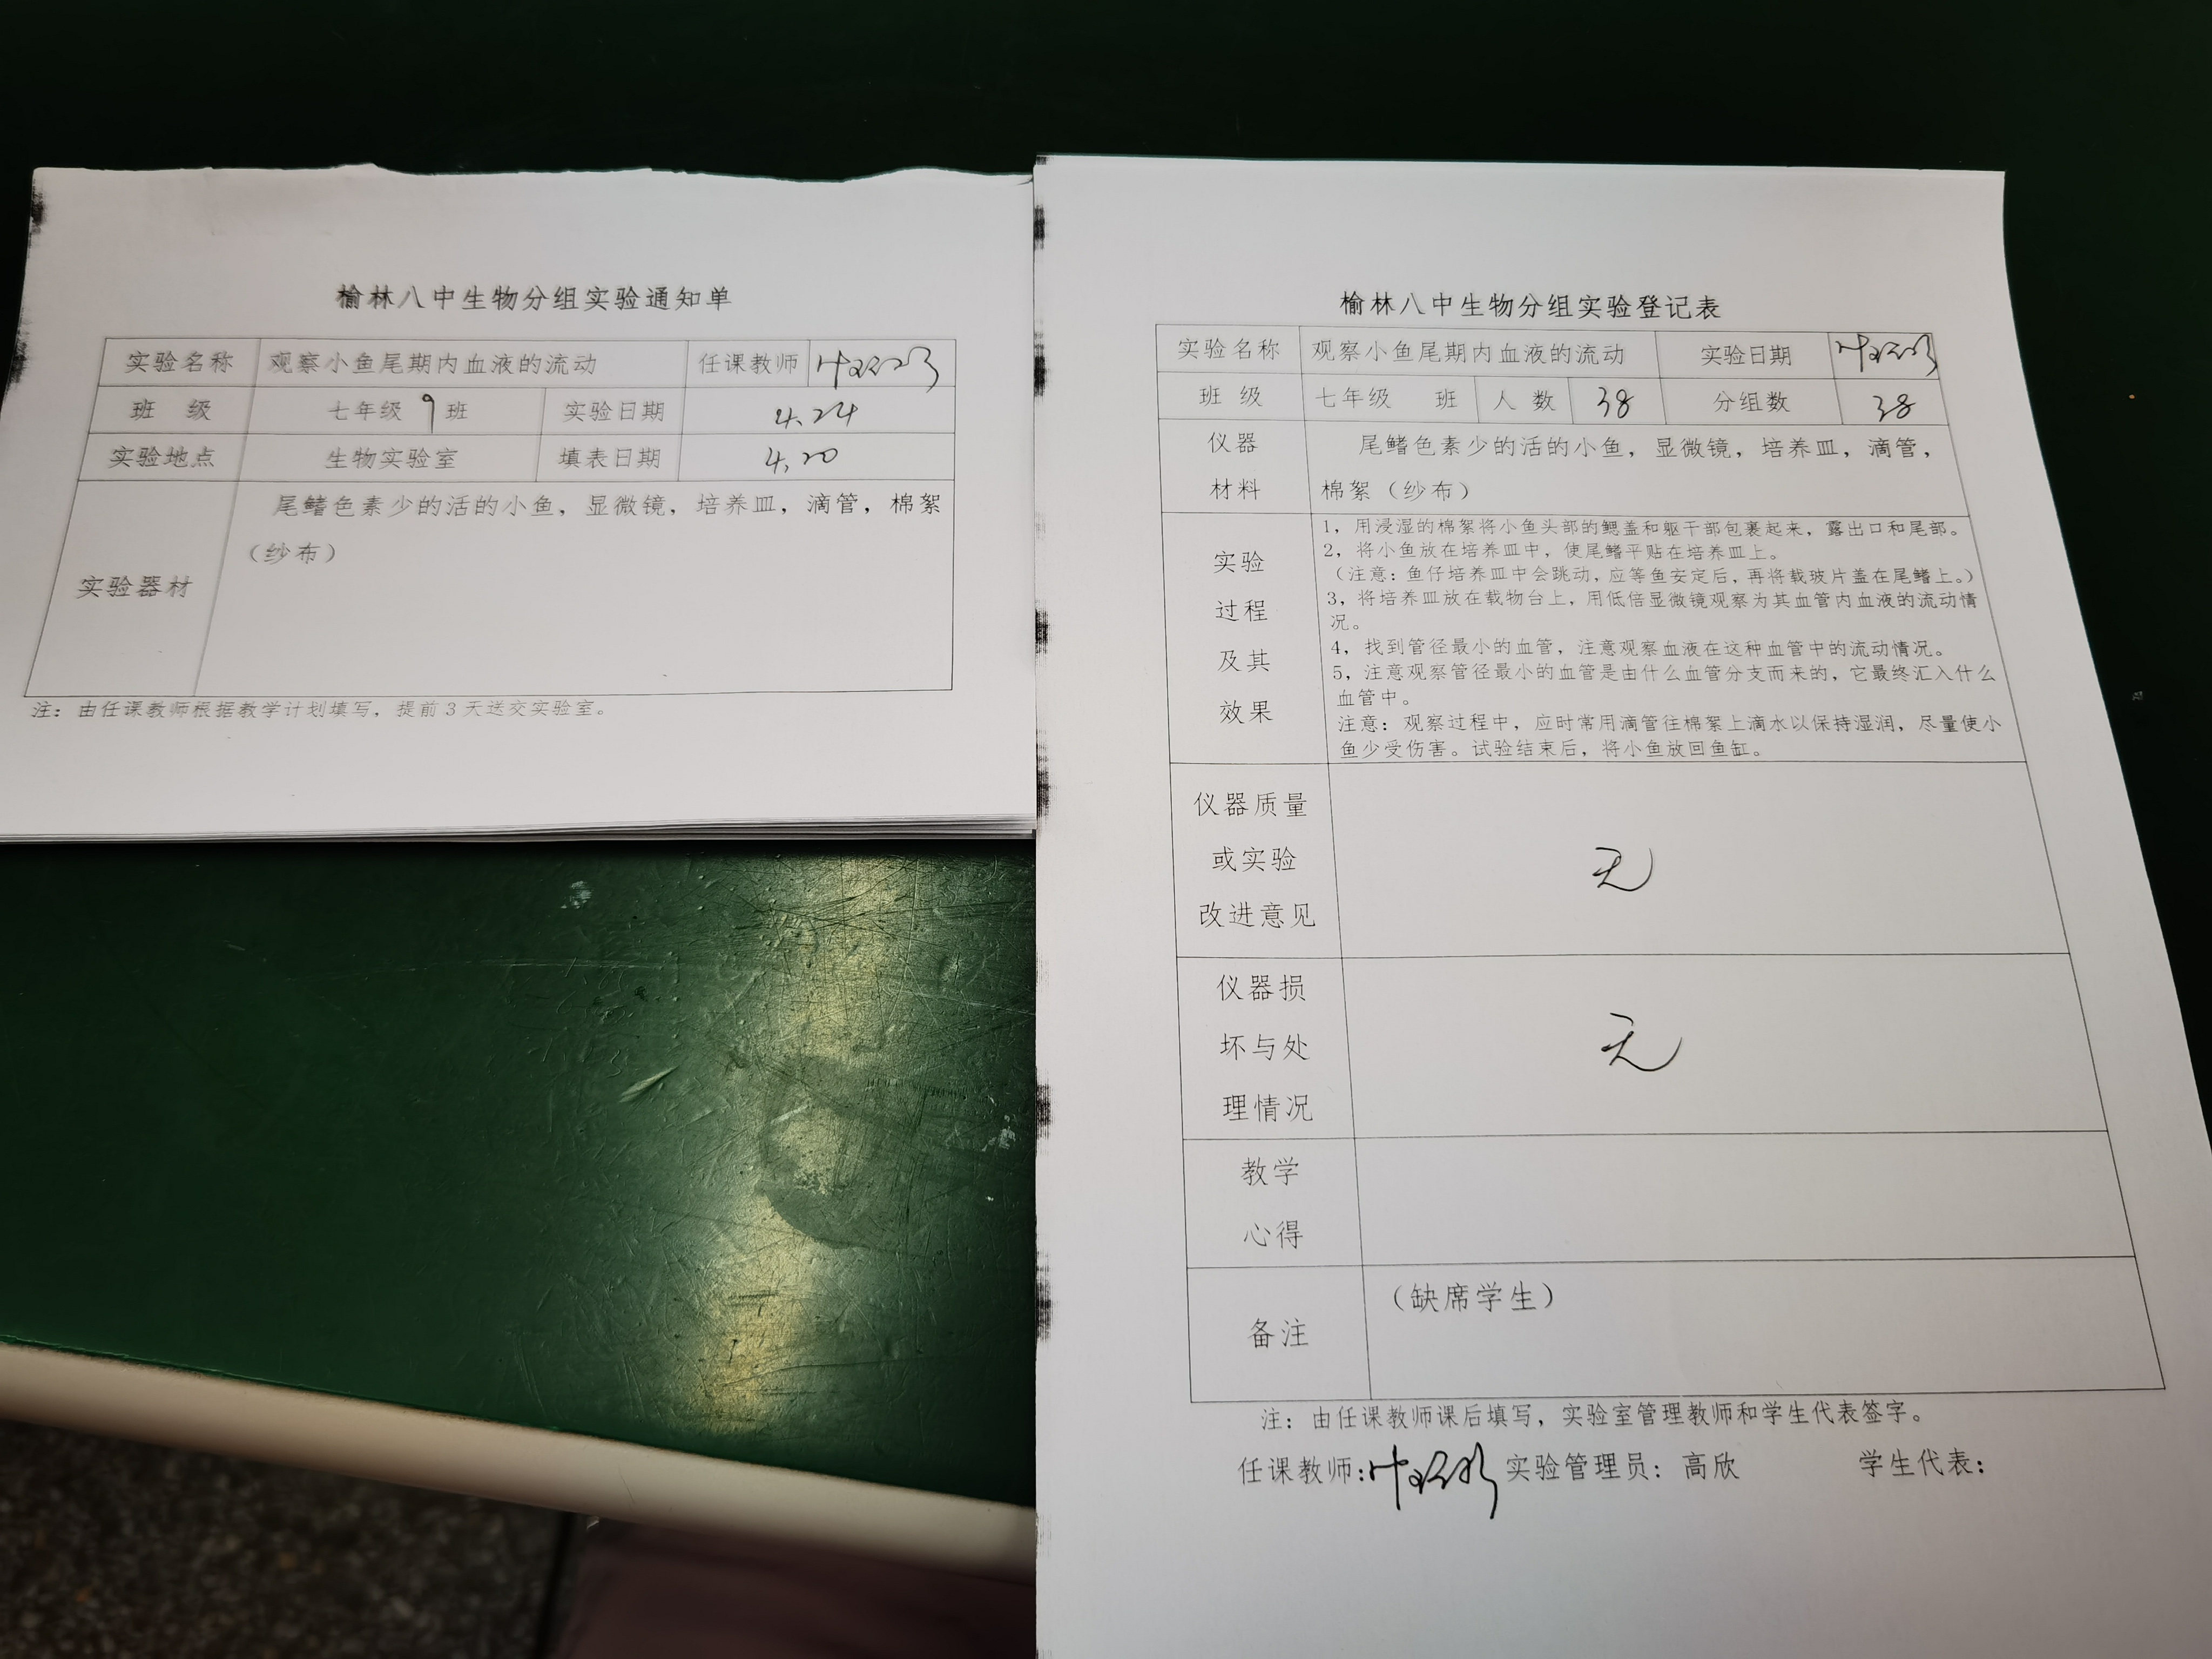 榆林八中生物分组实验通知单
实验名称 观察小鱼尾期内血液的流动 任课教师
班 级 七年级 9 班 实验日期 4.24
实验地点 生物实验室 填表日期 4.20
实验器材 尾鳍色素少的活的小鱼，显微镜，培养皿，滴管，棉絮
（纱布）
注：由任课教师根据教学计划填写，提前3天送交实验室。
榆林八中生物分组实验登记表
实验名称 观察小鱼尾期内血液的流动 实验日期
班 级 七年级 班 人 数 38 分组数 38
仪器 尾鳍色素少的活的小鱼，显微镜，培养皿，滴管，
材料 棉絮（纱布）
实验
过程
及其
效果
1，用浸湿的棉絮将小鱼头部的鳃盖和躯干部包裹起来，露出口和尾部。
2，将小鱼放在培养皿中，使尾鳍平贴在培养皿上。
（注意：鱼仔培养皿中会跳动，应等鱼安定后，再将载玻片盖在尾鳍上。）
3，将培养皿放在载物台上，用低倍显微镜观察为其血管内血液的流动情
况。
4，找到管径最小的血管，注意观察血液在这种血管中的流动情况。
5，注意观察管径最小的血管是由什么血管分支而来的，它最终汇入什么
血管中。
注意：观察过程中，应时常用滴管往棉絮上滴水以保持湿润，尽量使小
鱼少受伤害。试验结束后，将小鱼放回鱼缸。
仪器质量
或实验
改进意见
无
仪器损
坏与处
理情况
无
教学
心得
备注
（缺席学生）
注：由任课教师课后填写，实验室管理教师和学生代表签字。
任课教师: 实验管理员：高欣 学生代表：